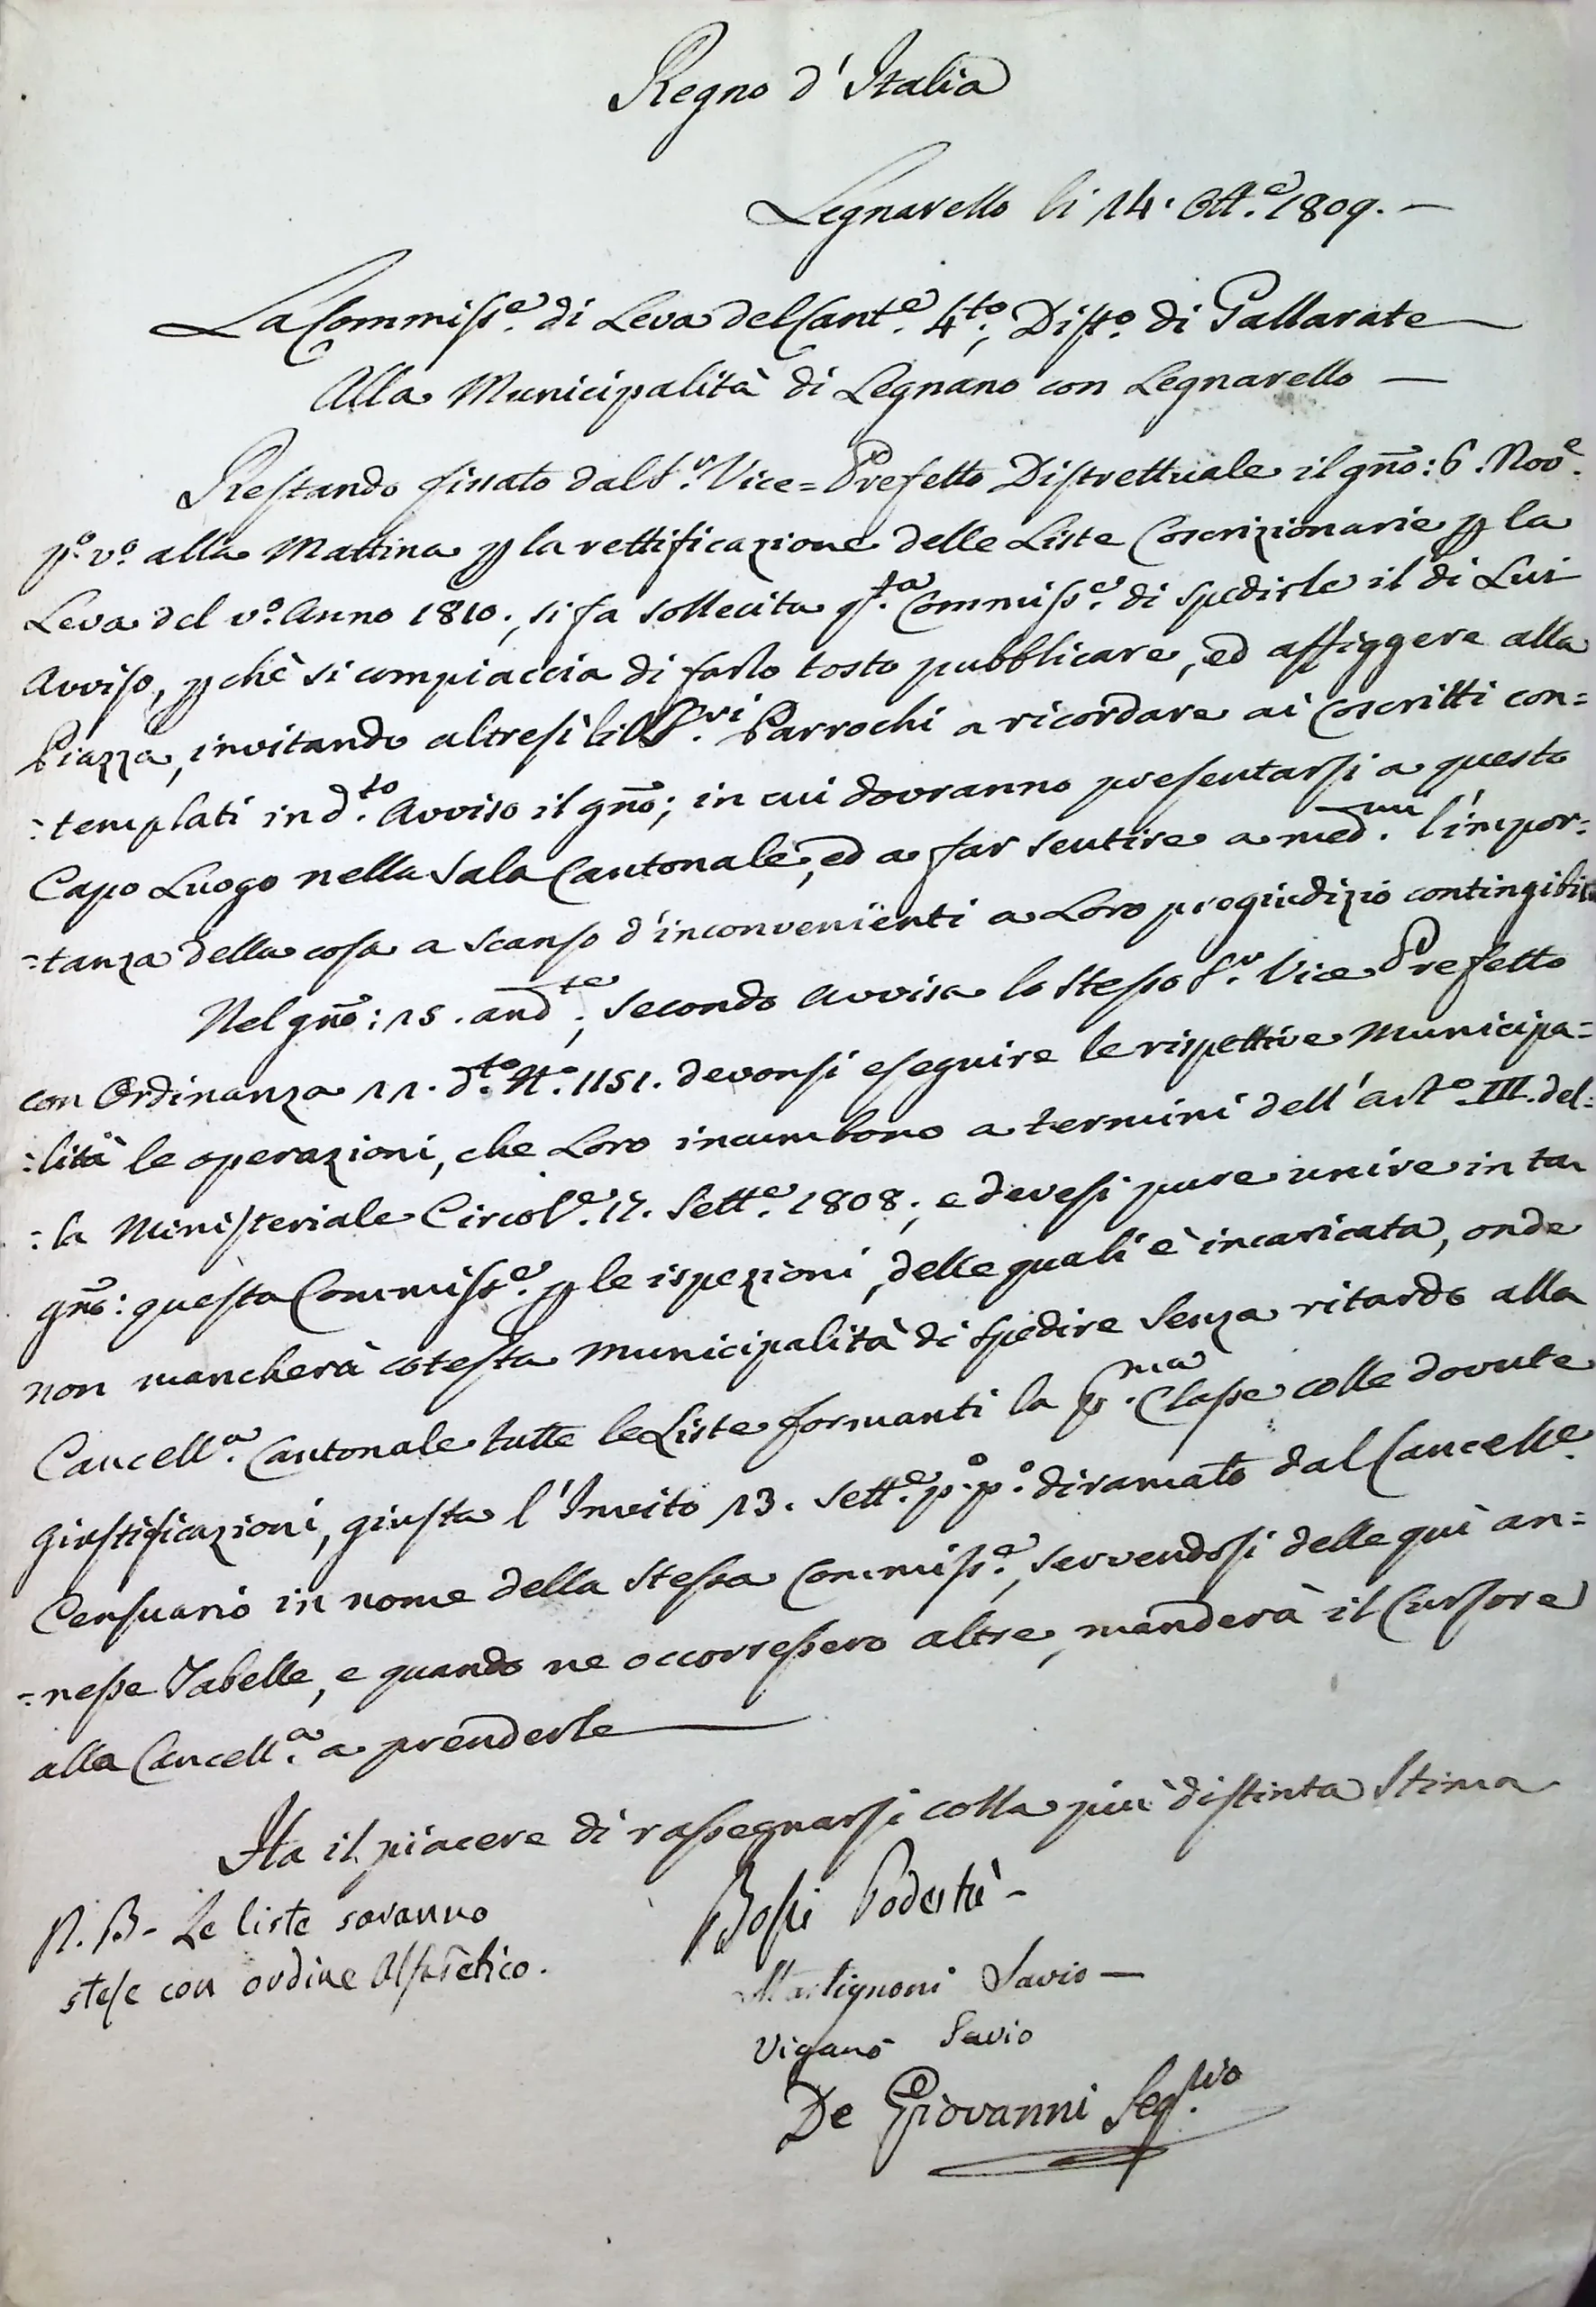 Regno d'Italia
Legnarello li 14. Ott.e 1809. —
La Commiss.e di Leva del Cant.e 4.to, Dist.o di Gallarate —
Alla Municipalità di Legnano con Legnarello —
Restando fissato dal S.r Vice=Prefetto Distrettuale il gño: 6. Nov.e
p.o v.o alla Mattina p la rettificazione delle Liste Coscrizionarie p la
Leva del v.o Anno 1810., si fa sollecita q.ta Commiss.e di spedirle il di Lui
Avviso, pchè si compiaccia di farlo tosto pubblicare, ed affiggere alla
Piazza, invitando altresì li SS.ri Parrochi a ricordare ai Coscritti con=
=templati in d.to Avviso il gño; in cui dovranno presentarsi a questo
Capo Luogo nella Sala Cantonale, ed a far sentire a med.mi l'impor=
=tanza della cosa a scanso d'inconvenienti a Loro pregiudizio contingibili
Nel gño: 15. and.te, secondo avvisa lo stesso S.r Vice Prefetto
con Ordinanza 11. d.to N.o 1151. devonsi eseguire le rispettive Municipa=
=lità le operazioni, che Loro incumbono a termini dell'art.o III. del=
=la Ministeriale Circol.e 17. Sett.e 1808., e devesi pure unire in tal
gño: questa Commiss.e p le ispezioni, delle quali è incaricata, onde
non mancherà cotesta Municipalità di spedire senza ritardo alla
Cancell.a Cantonale tutte le Liste formanti la p.ma Classe colle dovute
giustificazioni, giusta l'Invito 13. Sett.e p.o p.o diramato dal Cancell.e
Censuario in nome della stessa Commiss.e, servendosi delle quì an=
=nesse Tabelle, e quando ne occorressero altre, manderà il Cursore
alla Cancell.a a prenderle —
Ha il piacere di rassegnarsi colla più distinta Stima
N. B- Le liste saranno
stese con ordine Alfabetico.
Bossi Podestà -
Martignoni Savio —
Viganò Savio
De Giovanni Seg.rio